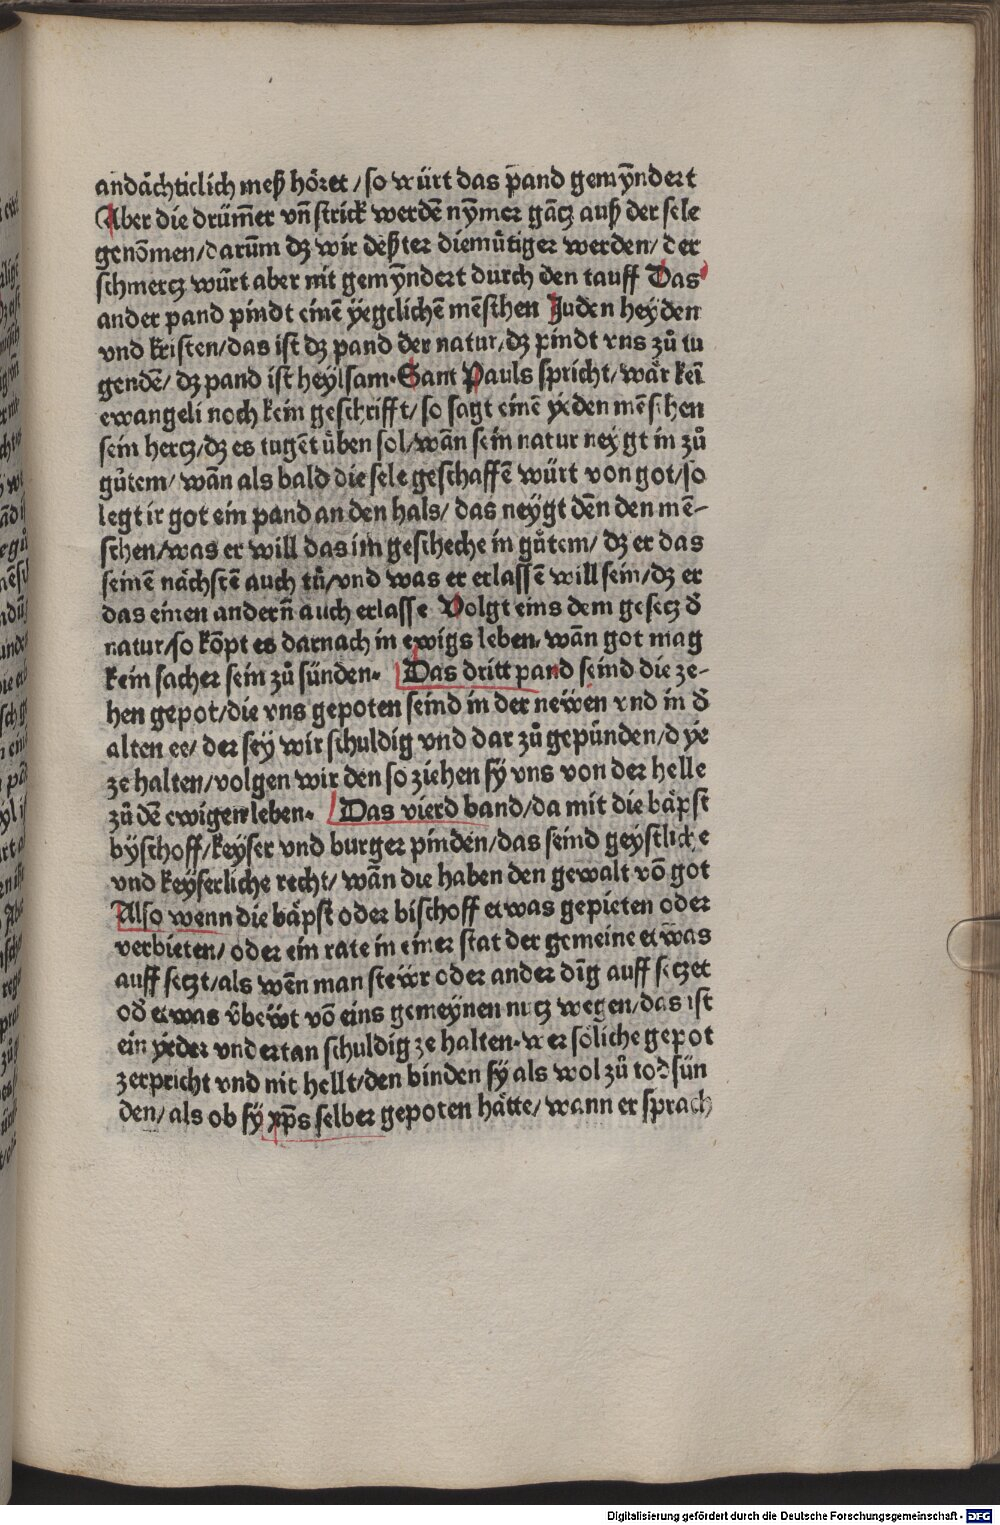 andåchticlich meß hőret / so würt das pand gemỹndert
Aber die drüm̃er vñ strick werdẽ nỹmer gãtz auß der sele
genõmen / darum̃ dz wir deßter diemütiger werden / der
schmertz würt aber nit gemỹndert durch den tauff Das
ander pand pindt einẽ yegclichẽ mẽschen Juden heyden
vnd kristen / das ist dz pand der natur / dz pindt vns zů tu
gendẽ / dz pand ist heylsam. Sant Pauls spricht / wår keĩ
ewangeli noch kein geschrifft / so sagt einẽ yeden mẽschen
sein hertz / dz es tugẽt üben sol / wãn sein natur neygt in zů
gůtem / wãn als bald die sele geschaffẽ würt von got / so
legt ir got ein pand an den hals / das neygt dẽn den mẽ-
schen / was er will das im gescheche in gůtem / dz er das
seinẽ nåchstẽ auch tů / vnd was er erlassẽ will sein / dz er
das einen anderñ auch erlasse Volgt eins dem gesetz đ
natur / so kõpt es darnach in ewigs leben. wãn got mag
kein sacher sein zů sünden. Das dritt pand seind die ze-
hen gepot / die vns gepoten seind in der newen vnd in đ
alten ee / der sey wir schuldig vnd dar zů gepunden / dye
ze halten / volgen wir den so ziehen sy vns von der helle
zů dẽ ewigen leben. Das vierd band / da mit die båpst
byschoff / keyser vnd burger pinden / das seind geystliche
vnd keyserliche recht / wãn die haben den gewalt võ got
Also wenn die båpst oder bischoff etwas gepieten oder
verbieten / oder ein rate in einer stat der gemeine etwas
auff setzt / als wẽn man stewr oder ander dĩg auff setzet
ođ etwas v̈bewt võ eins gemeynen nutz wegen / das ist
ein yeder vndertan schuldig ze halten. wer söliche gepot
zerpricht vnd nit hellt / den binden sy als wol zů todsün
den / als ob sy xp̃s selber gepoten håtte / wann er sprach
Digitalisierung gefördert durch die Deutsche Forschungsgemeinschaft - DFG